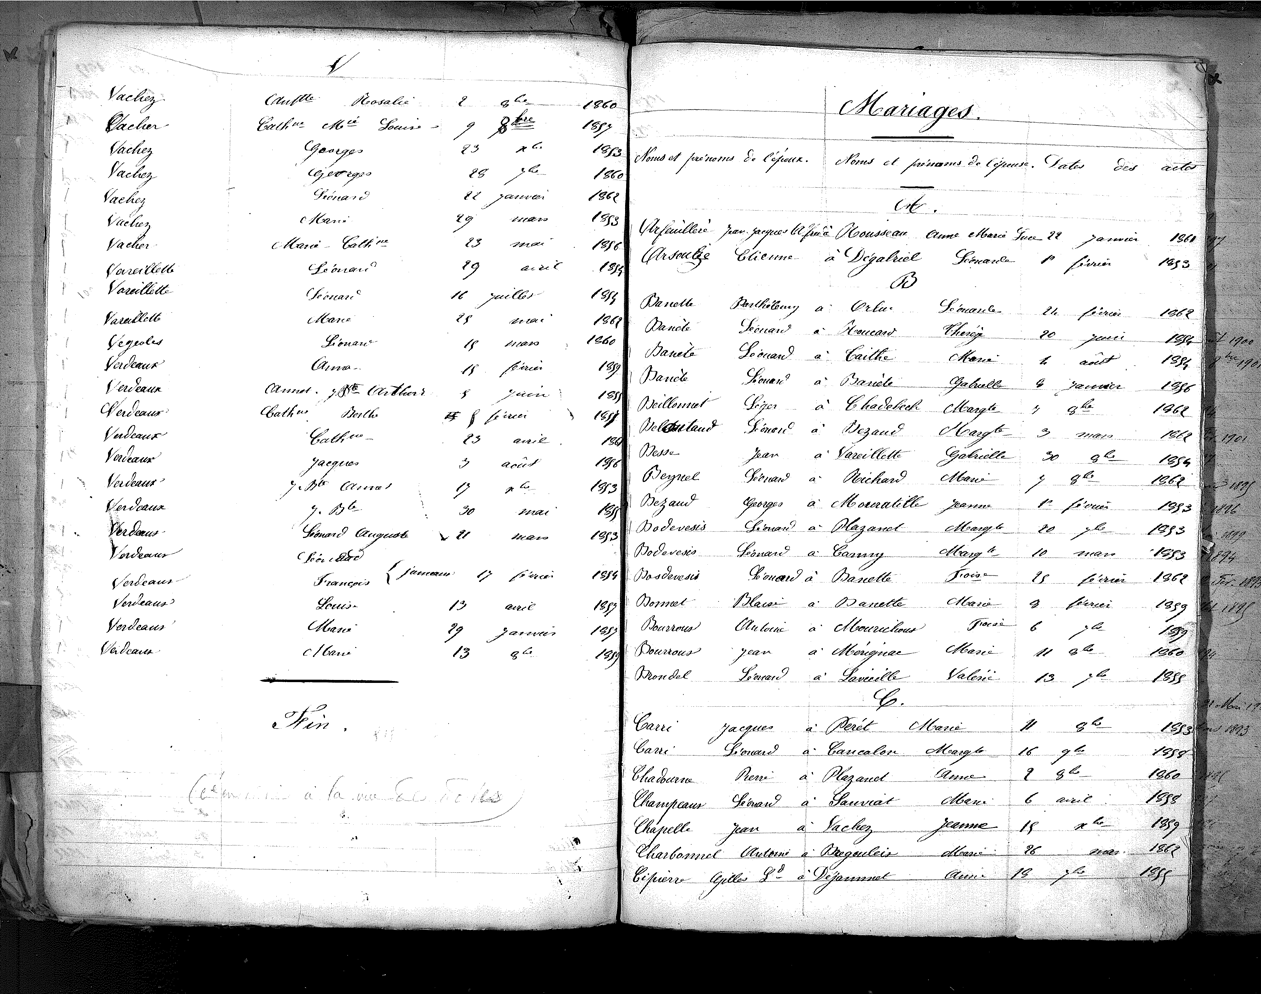 V
Vachez Rosalie 2 8bre 1860
Vacher Cathne Mie Louise 9 8bre 1857
Vachez Georges 23 xbre 1853
Vachez Georges 28 7bre 1860
Vachez Léonard 22 janvier 1862
Vachez Marie 29 mars 1853
Vacher Marie-Cathne 23 mai 1856
Vareillette Léonard 29 avril 1854
Vareillette Léonard 16 juillet 1854
Vareillette Marie 25 mai 1862
Végeoles Léonard 15 mars 1860
Verdeaux Anna 15 février 1859
Verdeaux Annet Arthur 5 juin 1855
Verdeaux Cathne Berthe 5 février
Verdeaux Cathne 23 avril
Verdeaux Jacques 3 août 1856
Verdeaux J. Bte Annet 17 xbre 1853
Verdeaux J. Bte 30 mai 1855
Verdeaux Léonard Auguste 21 mars 1853
Verdeaux Léonard
Verdeaux François { jumeaux 17 février 1854
Verdeaux Louise 13 avril 1857
Verdeaux Marie 29 janvier 1857
Verdeaux Marie 13 8bre 1859
Fin.
Mariages.
Noms et prénoms de l'époux. Noms et prénoms de l'épouse. Dates des actes
A.
Arfeuillère Jean Jacques à Rousseau Anne Marie 22 janvier 1861
Arsoulze Etienne à Dégabriel Léonarde 1er février 1853
B
Banette Barthélemy à Ortu Léonarde 24 février 1862
Banète Léonard à Roucard Thérèze 20 1854
Banète Léonard à Caithe Marie 4 août 1854
Banète Léonard à Banète Gabrielle 8 janvier 1856
Beillonnet Léger à Chadelech Margte 7 8bre 1862
Léonard à Bezaud Margte 3 mars 1862
Besse Jean à Vareillette Gabrielle 30 8bre 1854
Beynel Léonard à Richard Marie 7 8bre 1862
Bezaud Georges à Mouratille Jeanne 1er février 1853
Bodevesis Léonard à Plazanet Margte 20 7bre 1853
Bodevesis Léonard à Canny Margte 10 mars 1853
Bosdevesis Léonard à Banette Foise 25 février 1862
Bonnet Blaise à Banette Marie 8 février 1859
Bourrous Antoine à Mourichoux Foise 6 7bre 1859
Bourrous Jean à Mérignac Marie 11 8bre 1860
Brondel Léonard à Lavieille Valérie 13 7bre 1855
C.
Carri Jacques à Perét Marie 11 8bre 1853
Carri Léonard à Cancalon Margte 16 9bre 1858
Chadourne Pierre à Plazanet Anne 2 8bre 1860
Champeaux Léonard à Sauviat Marie 6 avril 1858
Chapelle Jean à Vachez Jeanne 15 xbre 1859
Charbonnel Antoine à Bregouleix Marie 26 mars 1862
Cépierre Gilles Ld à Dejammet Anne 18 7bre 1855